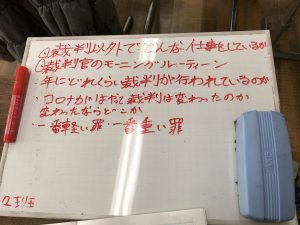 ①裁判以外でどんな仕事をしているか
②裁判官のモーニングルーティーン
・年にどれくらい裁判が行われているのか
・コロナがはやって裁判は変わったのか
変わったならどこか
・一番軽い罪・一番重い罪
2班